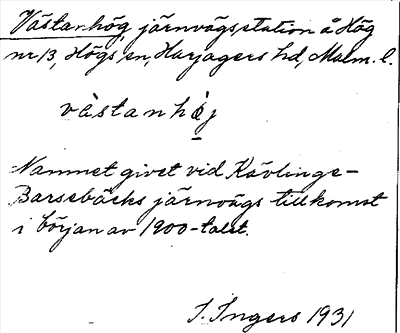 Västanhög, järnvägsstation å Hög
nr 13, Högs sn, Harjagers hd, Malm. l.
västanhǿj
Namnet givet vid Kävlinge-
Barsebäcks järnvägs tillkomst
i början av 1900-talet.
I. Ingers 1931